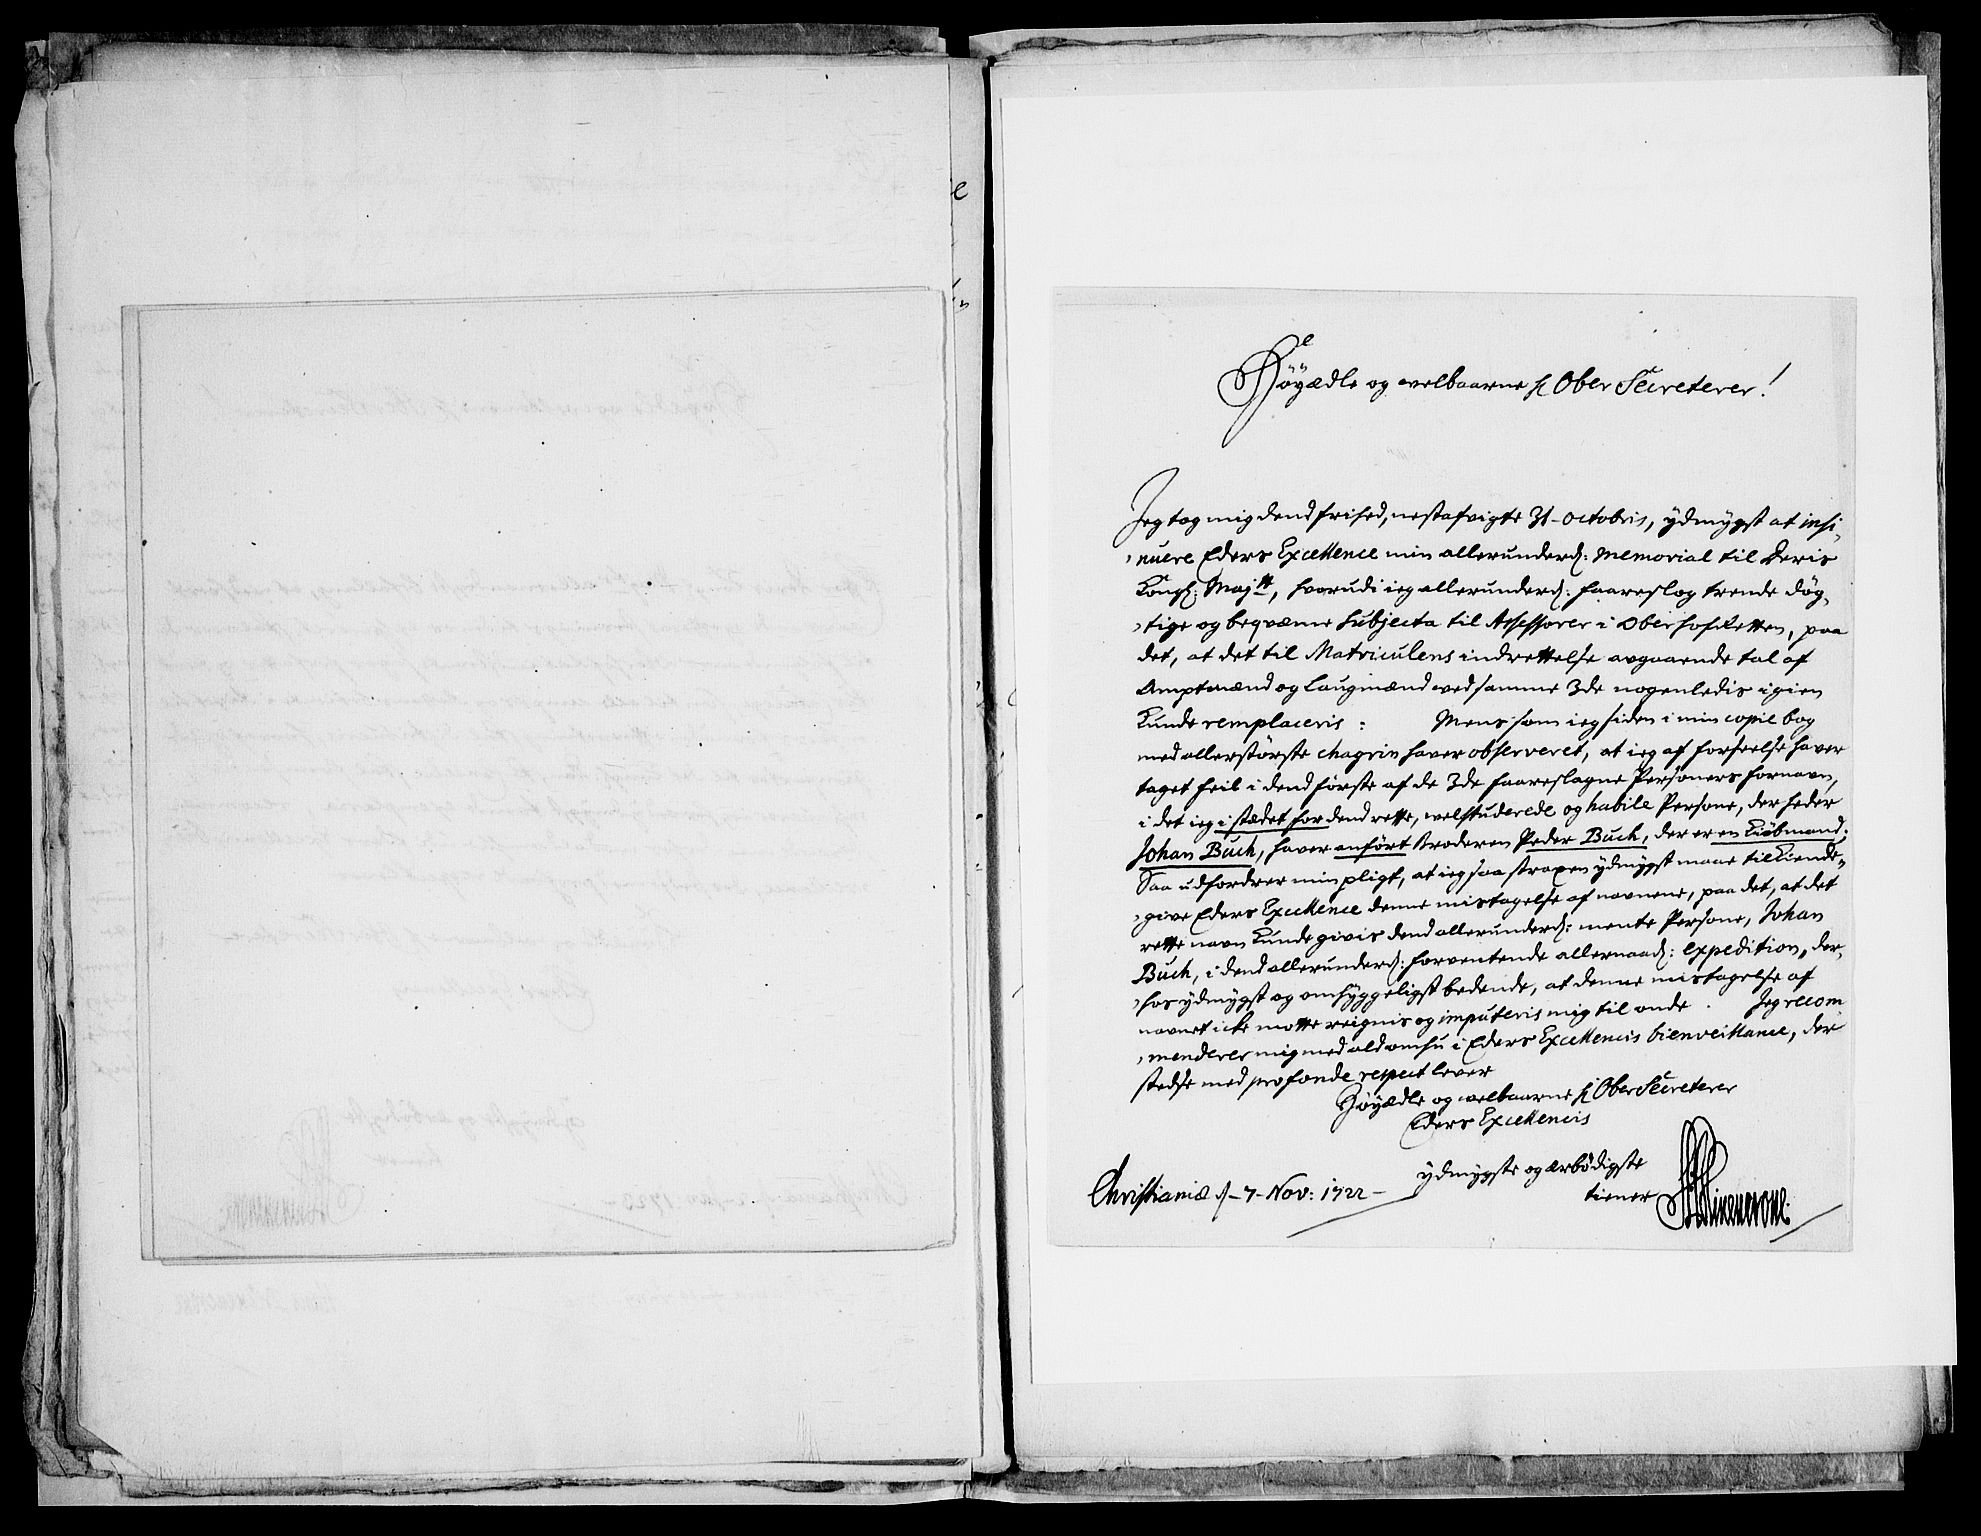 Höyædle og welbaarne H Ober Secreterer!
Jeg tog mig dend frihed, nestafvigte 31 - octobris, ydmygst at insi-
nuere Eders Excellence min allerunderd: Memorial til Deris
Kongl: Maj:tt, hvorudi ieg allerunderd: foareslog trende dög-
tige og beqvæme Subjecta til Assessorer i OberhofRetten, paa
det, at det til Matriculens indrettelse avgaaende tal af
Amptmænd og Laugmænd ved samme 3de nogenledis igien
Kunde remplaceris : Mens som ieg siden i min copie bog
med allerstörste chagrin haver observeret, at ieg af forseelse haver
taget feil i dend förste af de 3de foareslagne Persöners fornavn,
i det ieg i stædet for dend rette, welstuderede og habile Persone, der heder
Johan Buch, haver anfört Broderen Peder Buch, der er en Kiöbmand;
Saa udfordrer min pligt, at ieg saa straxen ydmygst maae tilkiende-
give Eders Excellence denne mistagelse af navnene, paa det, at det
rette navn Kunde givis dend allerunderd: mente Persone, Johan
Buch, i dend allerunderd: forventende allernaad: expedition, der-
hos ydmygst og omhyggeligst bedende, at denne mistagelse af
navnet icke motte reignis og imputeris mig til onde. Jeg recom
menderer mig med ald omhu i Eders Excellencis bienveillance, der
stedse med profonde respect lever
Höyædle og welbaarne H Ober Secreterer
Eders Excellencis
ydmygste og ærbödigste
tiener
Christianiæ d - 7 - Nov: 1722 -